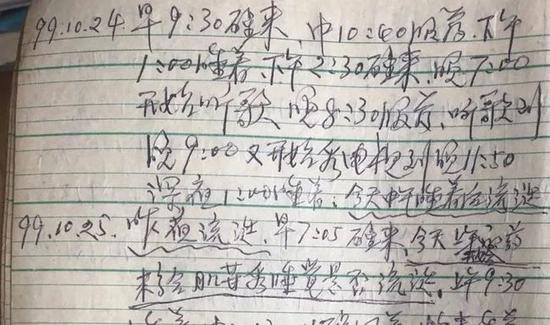 99.10.24.早9:30醒来.中10:40服药.下午
1:00睡着.下午2:30醒来.晚7:00
开始听歌 晚8:30服药.听歌到
晚9:00又开始看电视到晚11:50
深夜1:00睡着.今天中午睡着会流涎
99.10.25.昨夜流涎.早7:05醒来.今天
肌苷看睡觉是否流涎.上午9:30